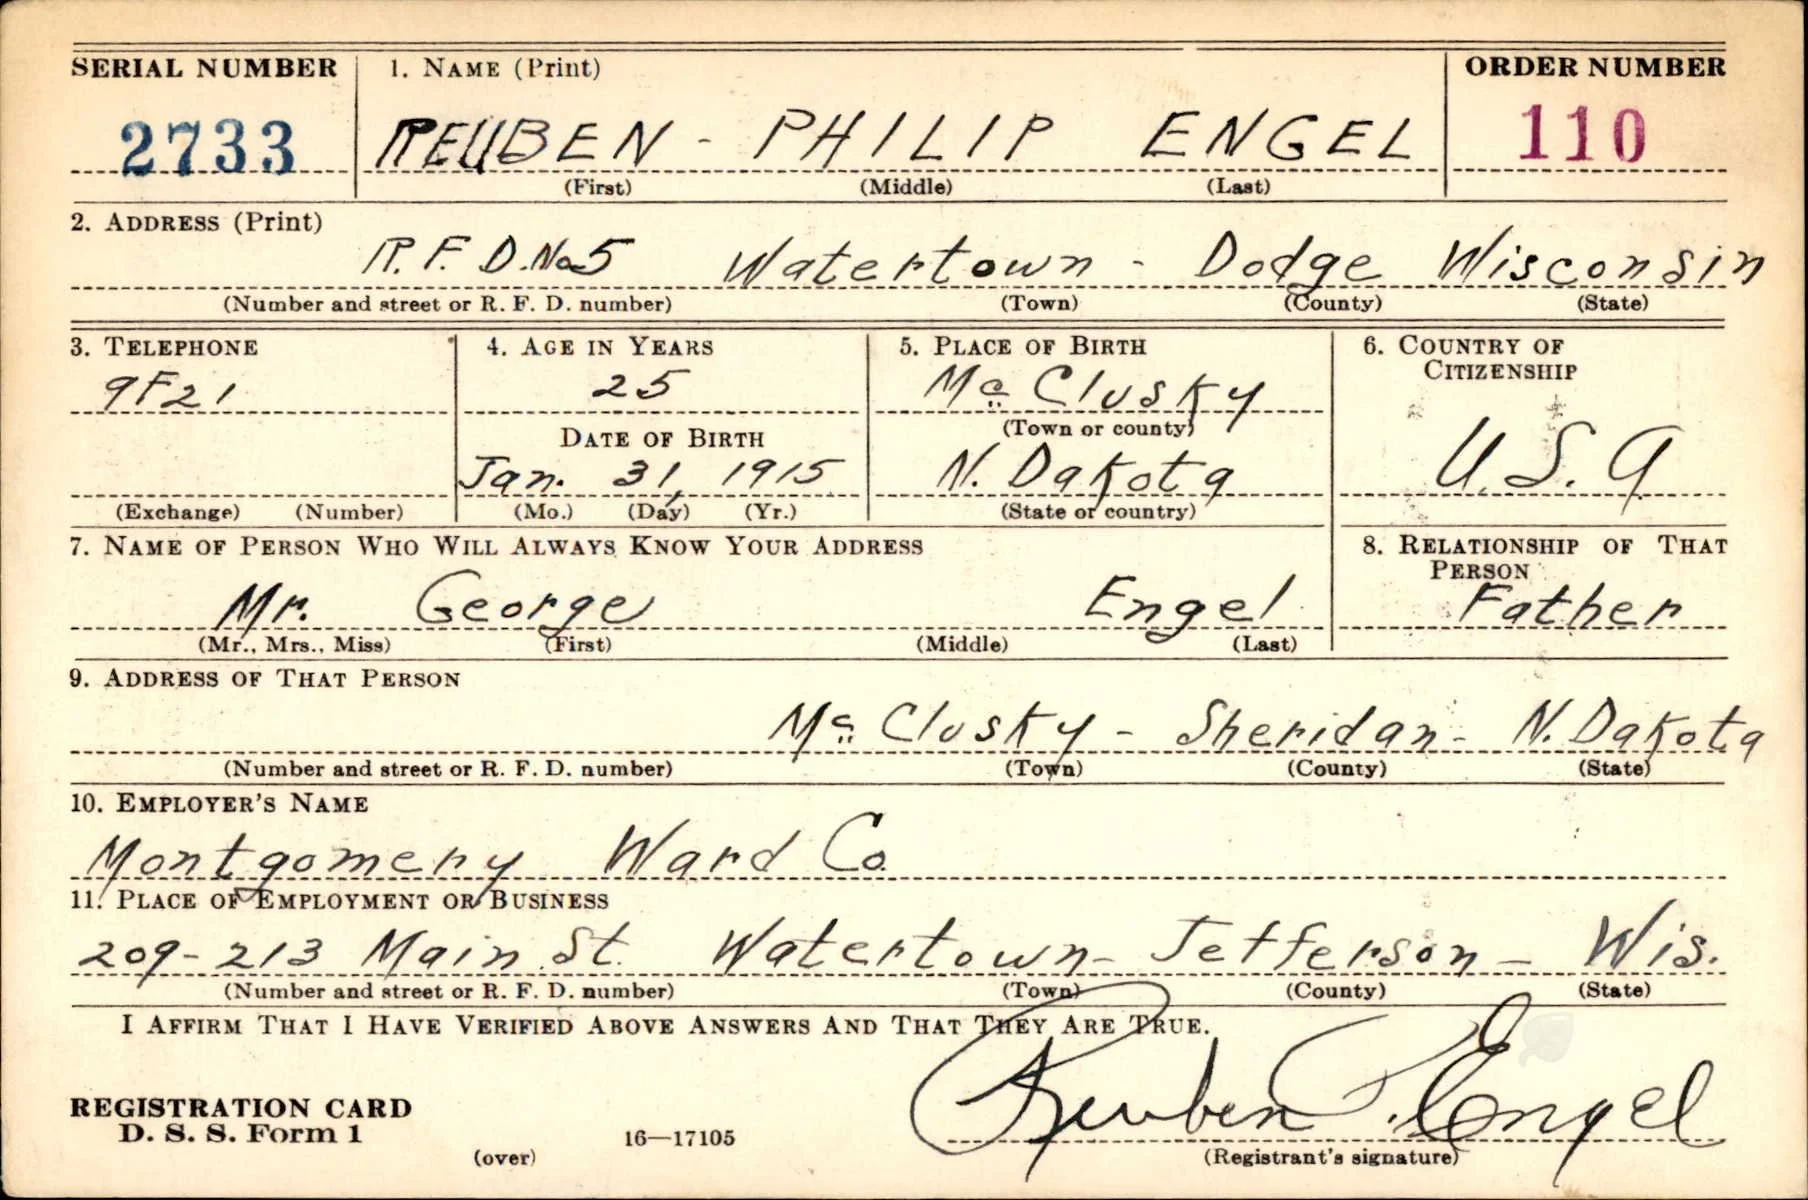 SERIAL NUMBER 1. NAME (Print) ORDER NUMBER
2733 REUBEN - PHILIP ENGEL 110
(First) (Middle) (Last)
2. ADDRESS (Print)
R.F.D. No 5 Watertown - Dodge Wisconsin
(Number and street or R. F. D. number) (Town) (County) (State)
3. TELEPHONE 4. AGE IN YEARS 5. PLACE OF BIRTH 6. COUNTRY OF
CITIZENSHIP
9F21 25 Mc Clusky
(Town or county)
DATE OF BIRTH
Jan. 31, 1915 N. Dakota U.S.A
(Exchange) (Number) (Mo.) (Day) (Yr.) (State or country)
7. NAME OF PERSON WHO WILL ALWAYS KNOW YOUR ADDRESS 8. RELATIONSHIP OF THAT
PERSON
Mr. George Engel Father
(Mr., Mrs., Miss) (First) (Middle) (Last)
9. ADDRESS OF THAT PERSON
Mc Clusky - Sheridan - N. Dakota
(Number and street or R. F. D. number) (Town) (County) (State)
10. EMPLOYER'S NAME
Montgomery Ward Co.
11. PLACE OF EMPLOYMENT OR BUSINESS
209-213 Main St. Watertown - Jefferson - Wis.
(Number and street or R. F. D. number) (Town) (County) (State)
I AFFIRM THAT I HAVE VERIFIED ABOVE ANSWERS AND THAT THEY ARE TRUE.
Reuben P. Engel
REGISTRATION CARD
D. S. S. Form 1
(over) 16—17105 (Registrant's signature)